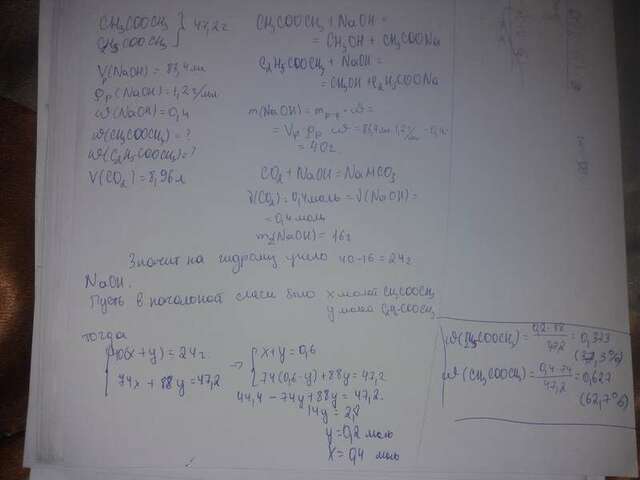 CH₃COOCH₃ } 47,2 г
C₂H₅COOCH₃
Vр(NaOH) = 83,4 мл
ρр(NaOH) = 1,2 г/мл
ω(NaOH) = 0,4
ω(CH₃COOCH₃) = ?
ω(C₂H₅COOCH₃) = ?
V(CO₂) = 8,96 л
CH₃COOCH₃ + NaOH =
= CH₃OH + CH₃COONa
C₂H₅COOCH₃ + NaOH =
= CH₃OH + C₂H₅COONa
m(NaOH) = mр-р · ω =
= Vр · ρр · ω = 83,4 мл · 1,2 г/мл · 0,4 =
= 40 г.
CO₂ + NaOH = NaHCO₃
ν(CO₂) = 0,4 моль = ν(NaOH) =
= 0,4 моль
m₂(NaOH) = 16 г
Значит на гидролиз ушло 40-16 = 24 г
NaOH.
Пусть в начальной смеси было x молей CH₃COOCH₃
y моль C₂H₅COOCH₃
тогда
{ 40(x+y) = 24 г.
74x + 88y = 47,2
→ { x+y = 0,6
74(0,6-y) + 88y = 47,2
44,4 - 74y + 88y = 47,2.
14y = 2,8
y = 0,2 моль
x = 0,4 моль
ω(C₂H₅COOCH₃) = 0,2 · 88 / 47,2 = 0,373
(37,3%)
ω(CH₃COOCH₃) = 0,4 · 74 / 47,2 = 0,627
(62,7%)